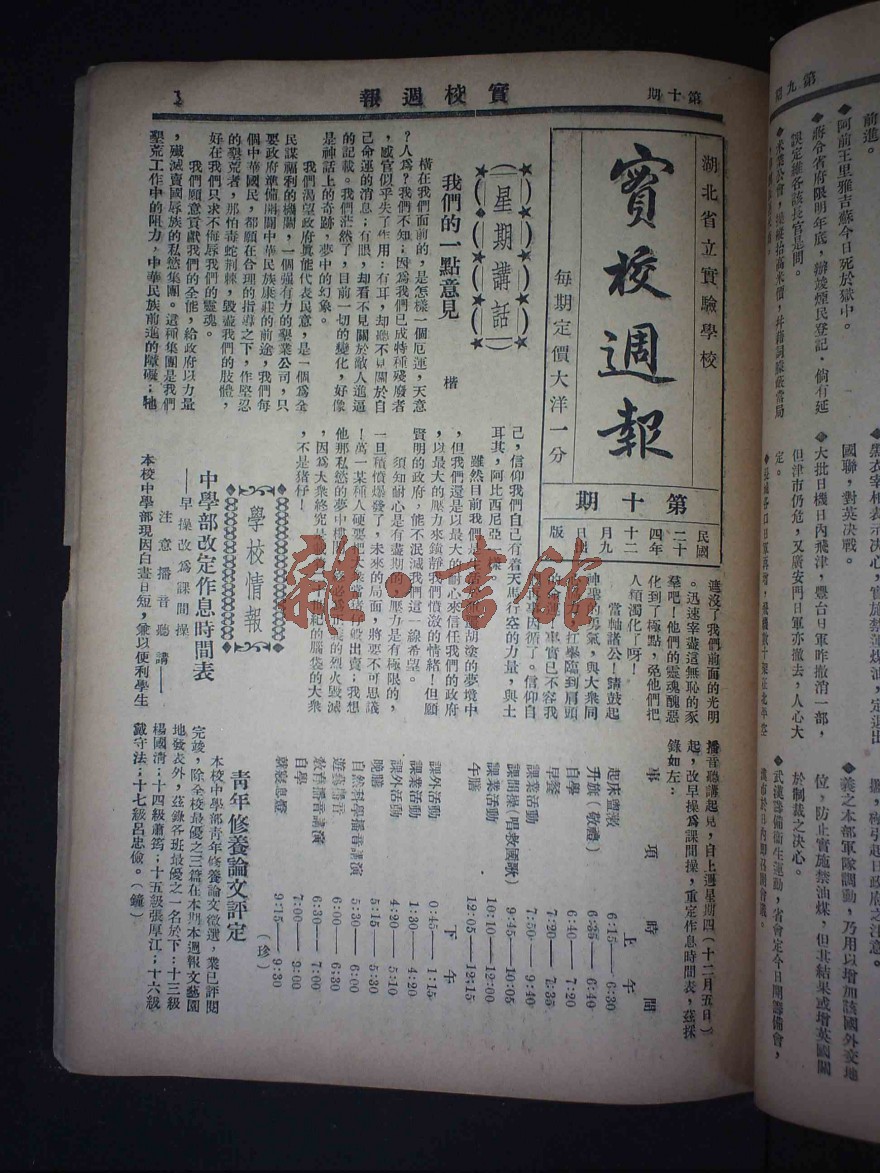 第十期
實校週報
1
湖北省立實驗學校
實校週報
每期定價大洋一分
第十期
民國
二十
四年
十二
月九
日出
版
星期講話
我們的一點意見
楷
橫在我們面前的，是怎樣一個厄運，天意
？人為？我們不知；因為我們已成特種殘廢者
，感官似乎失了作用：有耳，却聽不見關於自
己命運的消息；有眼，却看不見關於敵人進逼
的記載。我們茫然了，目前一切的變化，好像
是神話上的奇跡，夢中的幻象。
我們渴望政府眞能代表民意，是一個為全
民謀福利的機關，一個强有力的墾業公司，只
要政府準備開闢中華民族康莊的前途，我們每
個中華國民，都願在合理的指導之下，作堅忍
的墾荒者，那怕毒蛇荆棘，毀盡我們的肢體，
好在我們只求不侮辱我們的靈魂。
我們願意貢獻我們的全能，給政府以力量
，殲滅賣國辱族的私慾集團。這種集團是我們
墾荒工作中的阻力，中華民族前進的障礙；牠
遮沒了我們前面的光明
。迅速宰盡這無恥的豕
羣吧！他們的靈魂醜惡
化到了極點，免他們把
人類濁化了呀！
當軸諸公！請鼓起
神聖的勇氣，與大衆同
己，信仰我們自己有着天馬行空的力量，與土
耳其，阿比西尼亞
雖然目前我們是
胡塗的夢境中
，但我們還是以最大的耐心來信任我們的政府
，以最大的壓力來鎭靜我們憤激的情緒！但願
賢明的政府，能不泯滅我們這一線希望。
須知耐心是有盡期的，壓力是有極限的，
一旦積憤爆發了，未來的局面，將要不可思議
！萬一某種人硬要把
般出賣；我想
他那私慾的夢中樓閣
的烈火毀滅
，因為大衆終究是
紀的腦袋的大衆
，不是猪仔！
學校情報
中學部改定作息時間表
——早操改為課間操
注意播音聽講——
本校中學部現因白晝日短，兼以便利學生
播音聽講起見，自上週星期四（十二月五日）
起，改早操為課間操，重定作息時間表，茲採
錄如左：
事項 時間
上午
起床盥漱 6:15——6:30
升旗（敬禮） 6:35——6:40
自學 6:40——7:20
早餐 7:20——7:35
課業活動 7:50——9:40
課間操（唱救國歌） 9:45——10:05
課業活動 10:10——12:00
午膳 12:05——12:15
下午
課外活動 0:45——1:15
課業活動 1:30——4:20
課外活動 4:20——5:10
晚膳 5:15——5:30
自然科學播音講演 5:30——6:00
遊藝播音 6:00——6:30
教育播音講演 6:30——7:00
自學 7:00——9:00
就寢息燈 9:15——9:30
（珍）
青年修養論文評定
本校中學部青年修養論文徵選，業已評閱
完竣，除全校最優之三篇在本期本週報文藝園
地發表外，茲錄各班最優之一名於下：十三級
楊國清；十四級蕭筠；十五級張厚江；十六級
戴守法；十七級呂忠儉。（鐘）
雜·書館
第九期
前進。
◆阿前王里雅吉蘇今日死於獄中。
◆蔣令省府限明年底，辦竣煙民登記，倘有延
誤定維各該長官是問。
國聯，對英決戰。
◆大批日機日內飛津，豐台日軍昨撤消一部，
但津市仍危，又廣安門日軍亦撤去，人心大
定。
◆義之本部軍隊調動，乃用以增加該國外交地
位，防止實施禁油煤，但其結果或增英國關
於制裁之決心。
◆武漢籌備衛生運動，省會定今日開籌備會，